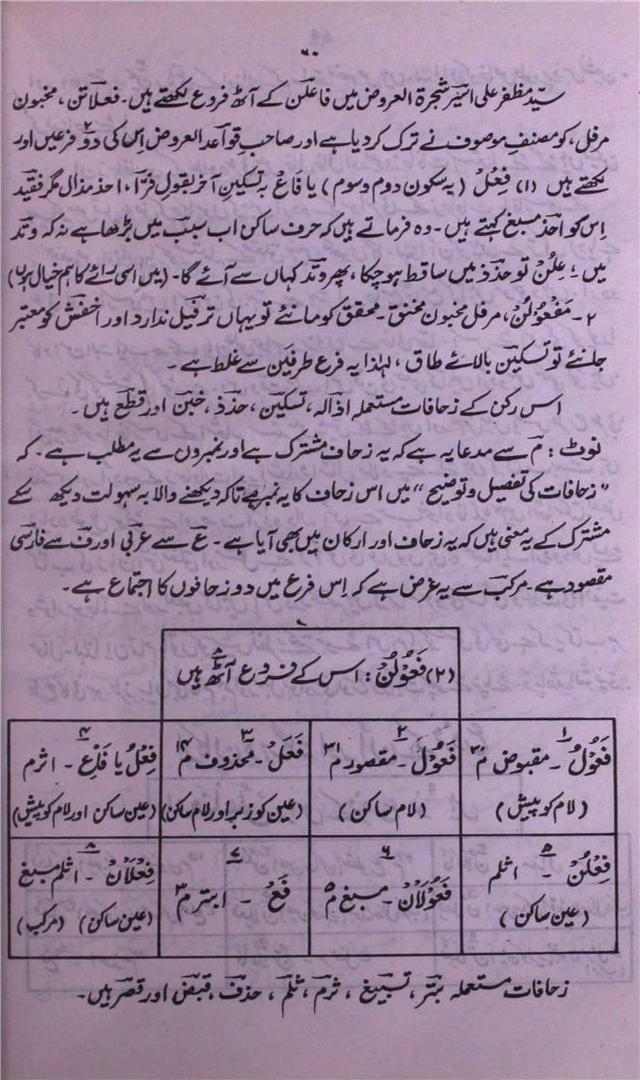 ۶۰
سیّد مظفر علی اسیر شجرة العروض میں فاعلن کے آٹھ فروع لکھتے ہیں۔ فعلاتن، مخبون
مرفل، کو مصنف موصوف نے ترک کر دیا ہے اور صاحب قواعد العروض اس کی دو۲ فرعیں اور
لکھتے ہیں (۱) فِعْلْ (بہ سکون دوم و سوم) یا فَاعْ بہ تسکین آخر بقول فرّا، احذ مذال مگر فقید
اس کو احذ مسبغ کہتے ہیں۔ وہ فرماتے ہیں کہ حرف ساکن اب سبب میں بڑھا ہے نہ کہ وتد
میں؛ عِلُنْ تو حذذ میں ساقط ہو چکا، پھر وتد کہاں سے آئے گا۔ (میں اسی رائے کا ہم خیال ہوں)
۲۔ مَفْعُوْلُنْ، مرفل مخبون مخنق۔ محقق کو مانئے تو یہاں ترفیل ندارد اور اخفش کو معتبر
جانئے تو تسکین بالائے طاق، لہٰذا یہ فرع طرفین سے غلط ہے۔
اس رکن کے زحافات مستعملہ اذالہ، تسکین، حذذ، خبن اور قطع ہیں۔
نوٹ: مؔ سے مدعا یہ ہے کہ یہ زحاف مشترک ہے اور نمبروں سے یہ مطلب ہے۔ کہ
"زحافات کی تفصیل و توضیح" میں اس زحاف کا یہ نمبر ہے تاکہ دیکھنے والا بہ سہولت دیکھ سکے
مشترک کے یہ معنی ہیں کہ یہ زحاف اور ارکان میں بھی آیا ہے۔ عؔ سے عربی اور فؔ سے فارسی
مقصود ہے۔ مرکب سے یہ غرض ہے کہ اس فرع میں دو زحافوں کا اجتماع ہے۔
(۲) فَعُوْلُنْ: اس کے فروع آٹھ۸ ہیں
۱ فَعُوْلُ۔ مقبوض م۳۰
(لام کو پیش)
۲ فَعُوْلْ۔ مقصور م۳۱
(لام ساکن)
۳ فَعَلْ۔ محذوف م۱۴
(عین کو زبر اور لام ساکن)
۴ فِعْلُ یا فَاعِ۔ اثرم
(عین ساکن اور لام کو پیش)
۵ فِعْلُنْ۔ اثلم
(عین ساکن)
۶ فَعُوْلَانْ۔ مسبغ م۵
۷ فَعْ۔ ابتر م۳
۸ فِعْلَانْ۔ اثلم مسبغ
(عین ساکن) (مرکب)
زحافات مستعملہ بتر، تسبیغ، ثرم، ثلم، حذف، قبض اور قصر ہیں۔